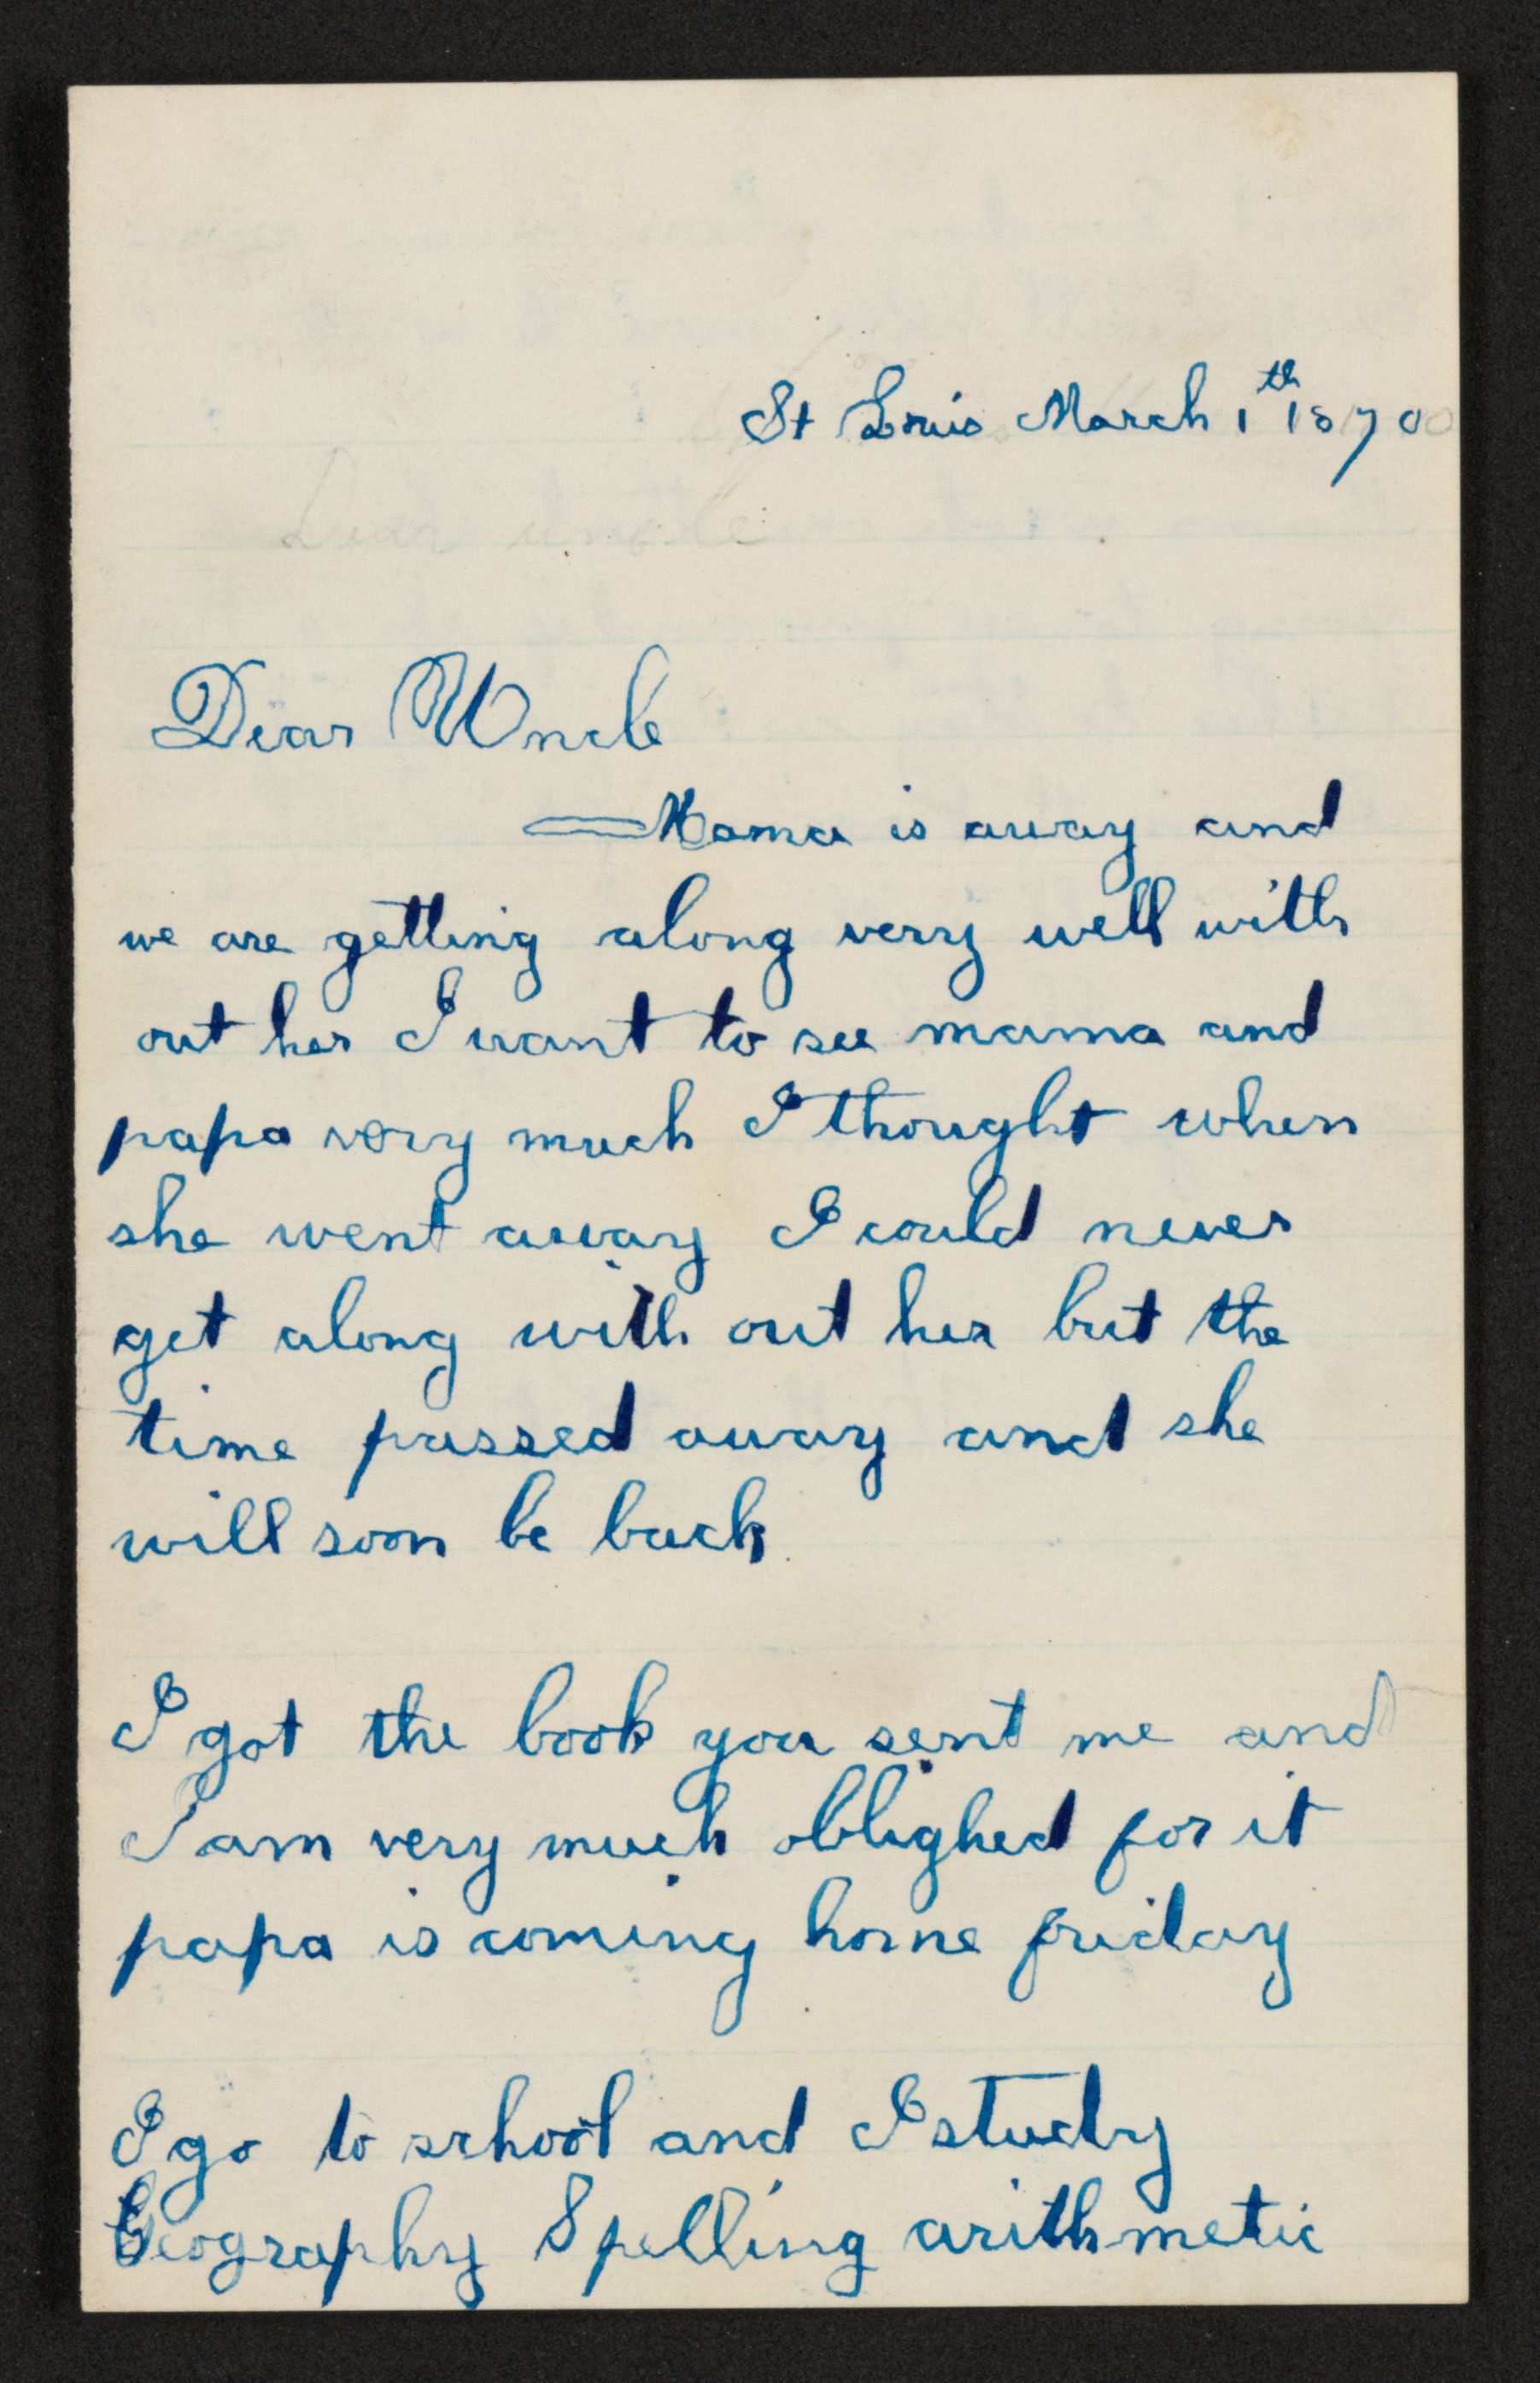 St Louis March 1th 1870
Dear uncle
Dear Uncle
Mama is away and
we are getting along very well with
out her I want to see mama and
papa very much I thought when
she went away I could never
get along with out her but the
time passed away and she
will soon be back
I got the book you sent me and
I am very much oblighed for it
papa is coming home friday
I go to school and I study
Geography Spelling arithmetic